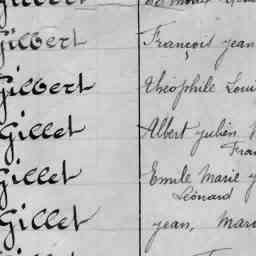 Gilbert François jean
Gilbert théophile Loui
Gillet Albert julien
Fran
Gillet Emile Marie
Léonard
Gillet jean, Mari